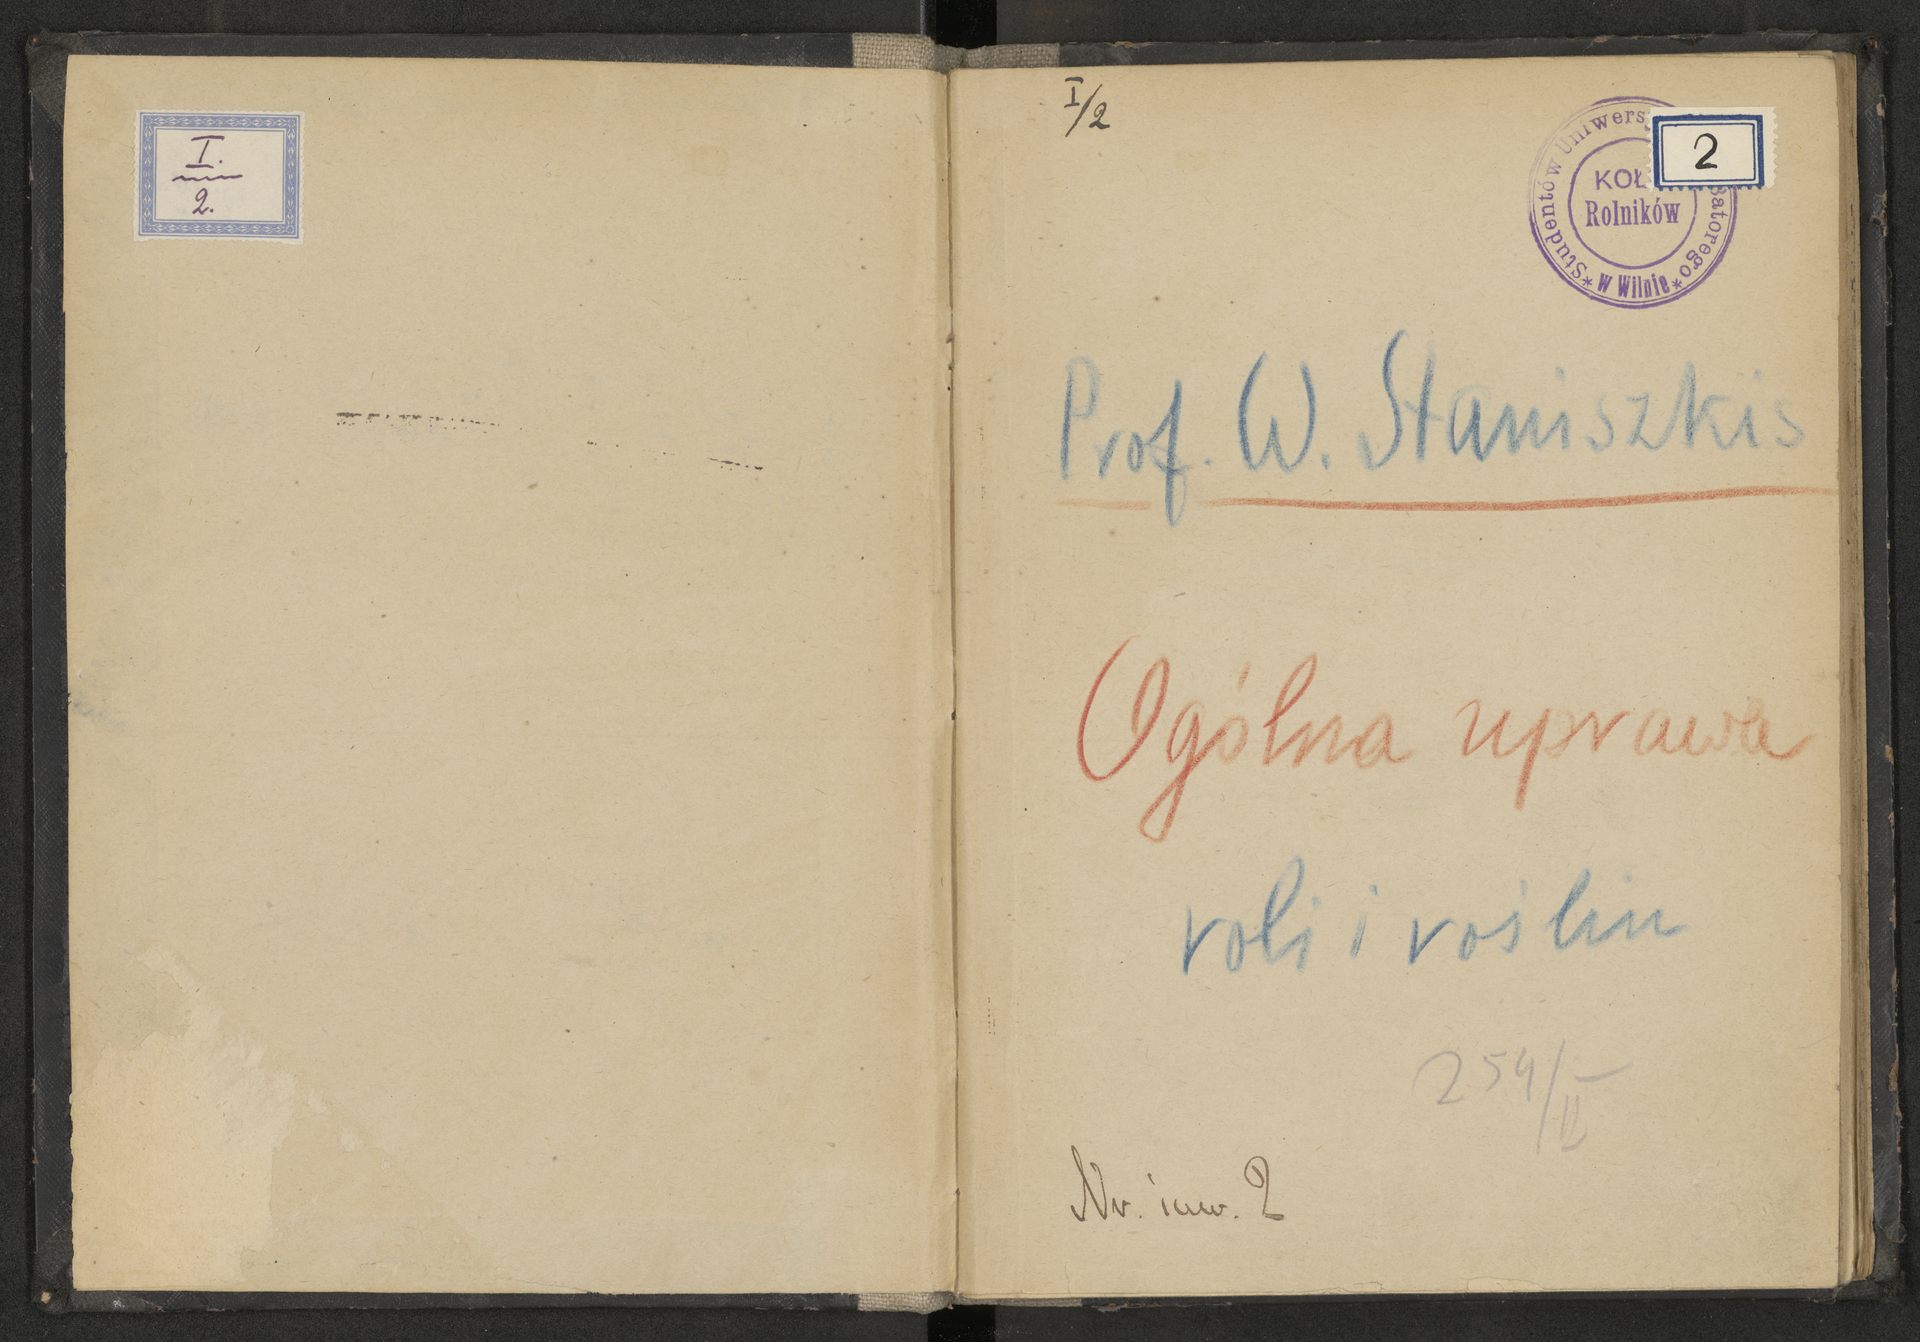 I.
2.
I/2
2
Studentów Uniwers
Batorego
w Wilnie
KOŁ
Rolników
Prof. W. Staniszkis
Ogólna uprawa
roli i roślin
254/II
Nr. inw. 2